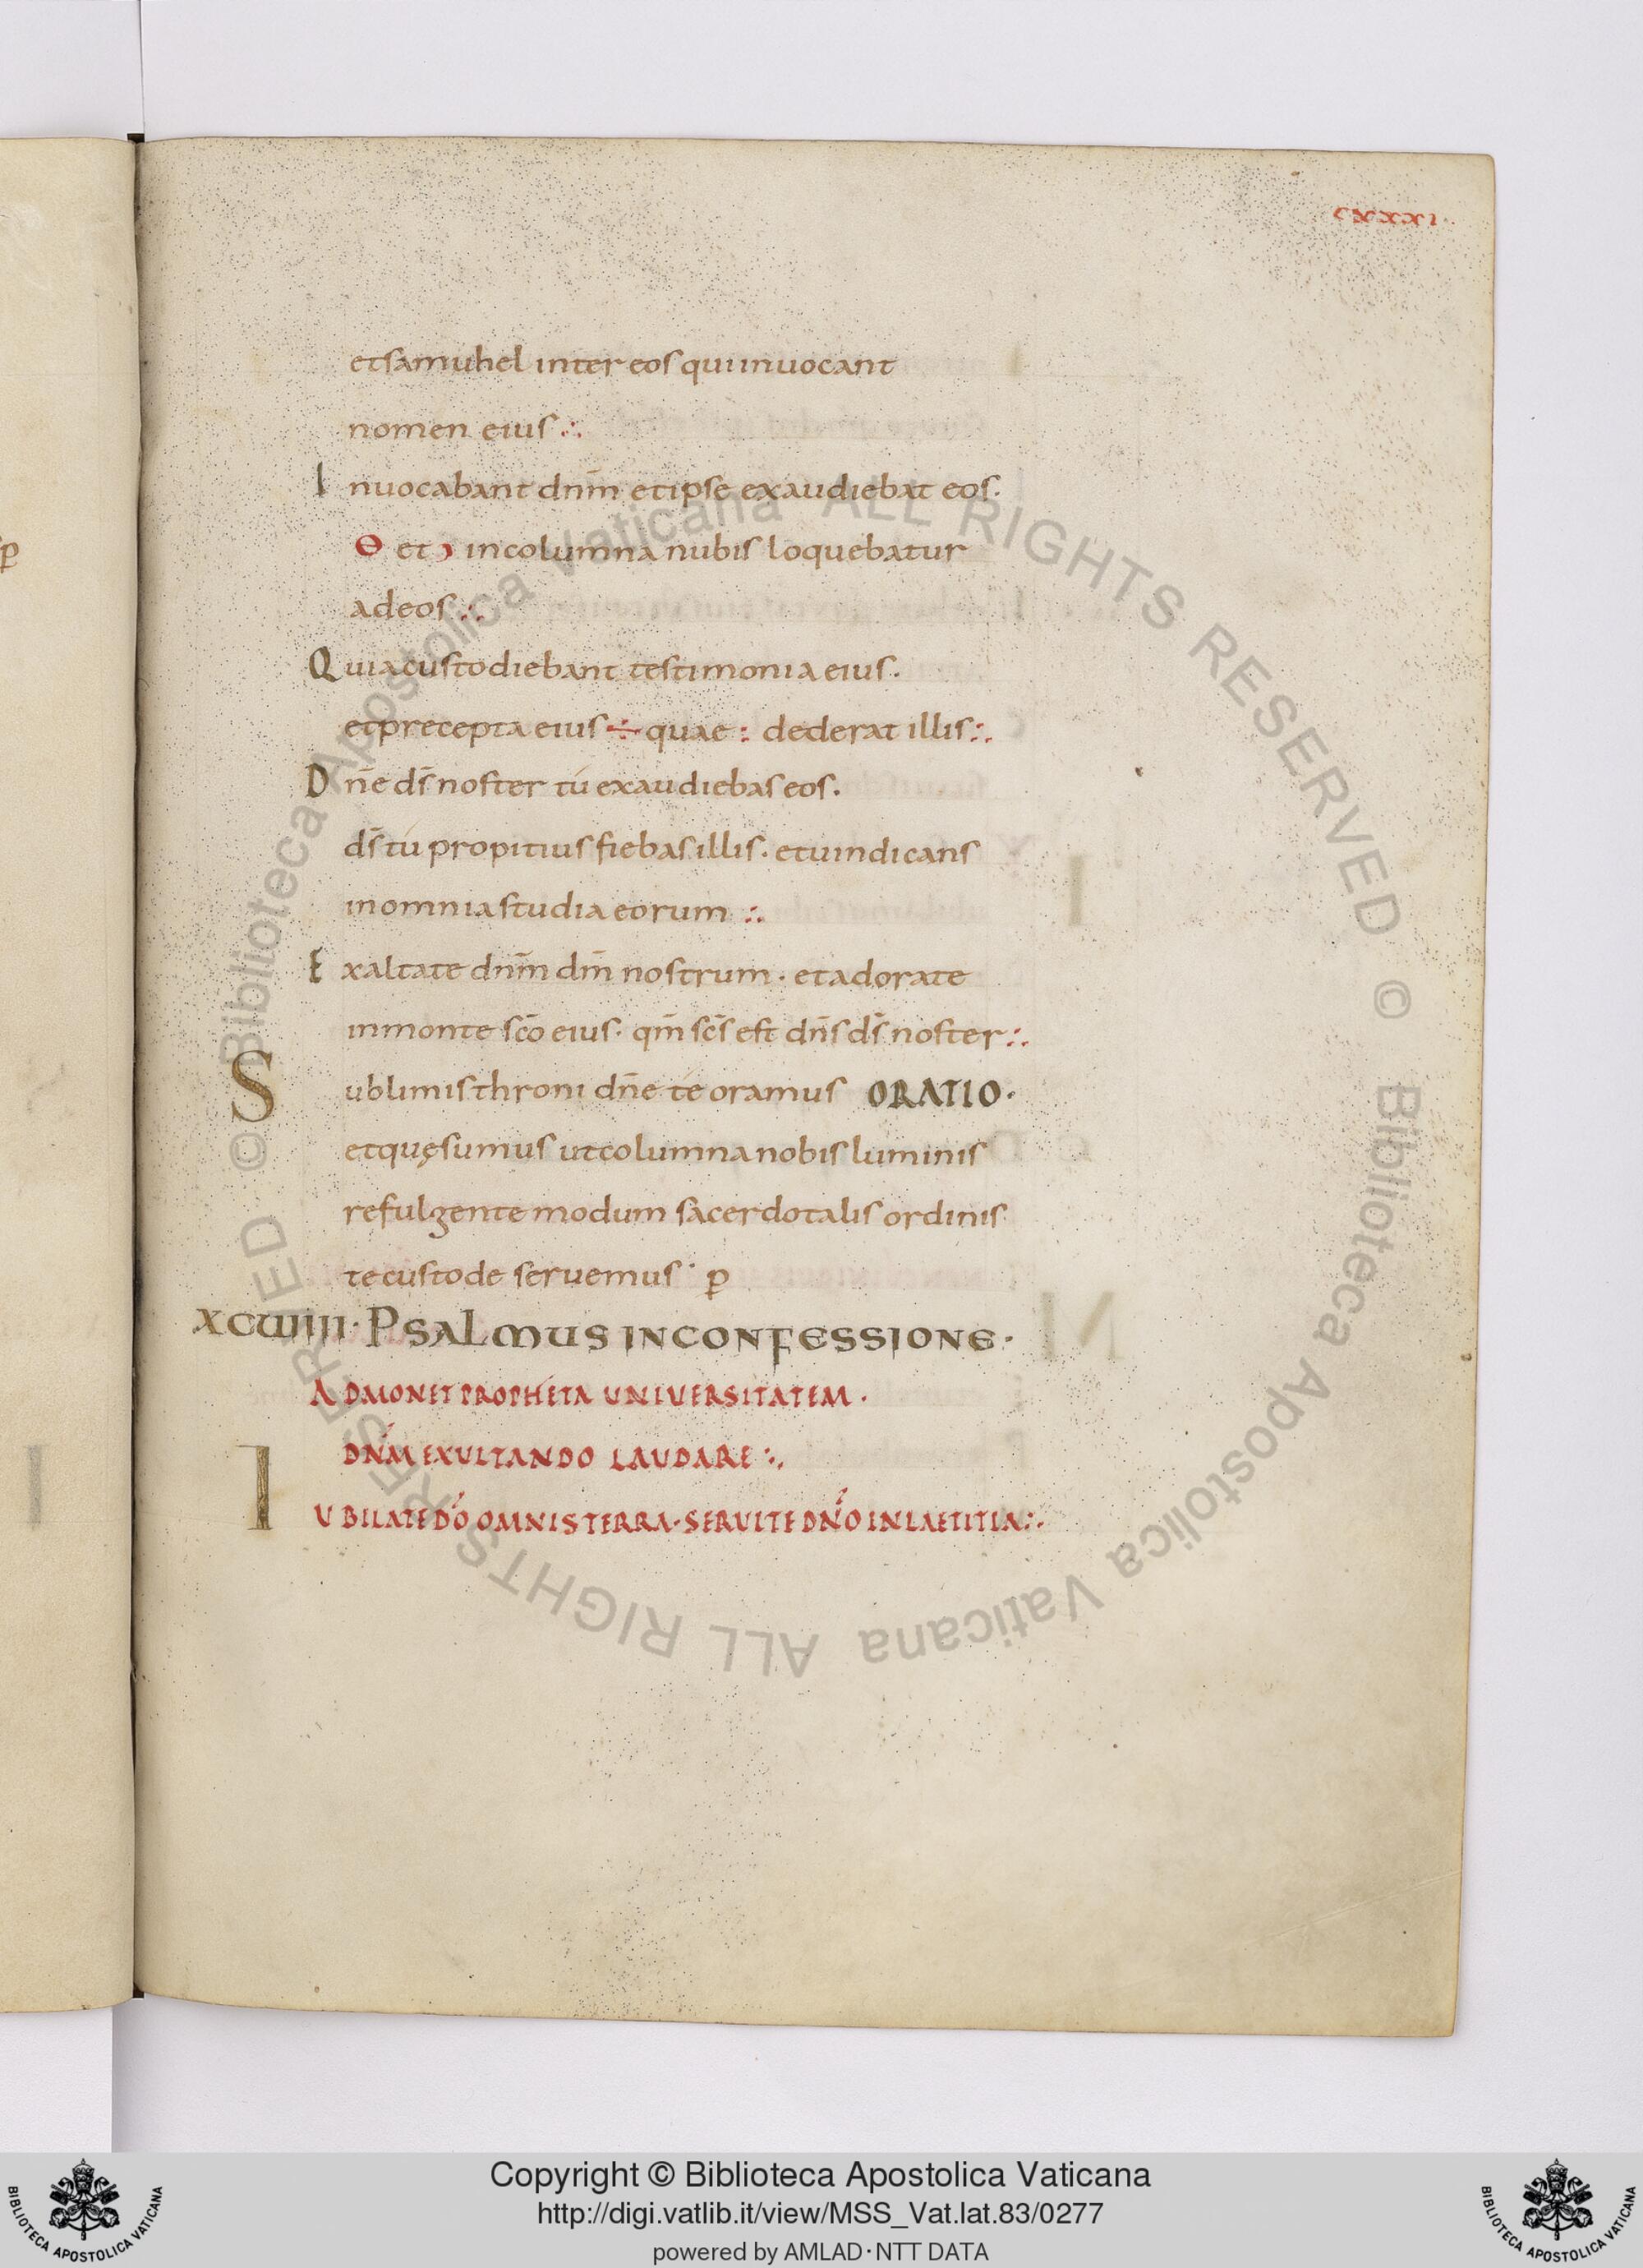 cxxxi.
etsamuhel inter eos qui inuocant
nomen eius :.
Inuocabant dn̄m et ipse exaudiebat eos.
Θ et ɔ in columna nubis loquebatur
ad eos :.
Quia custodiebant testimonia eius.
et precepta eius ÷ quae : dederat illis :.
Dn̄e ds̄ noster tú exaudiebas eos.
ds̄ tú propitius fiebas illis. et uindicans
in omnia studia eorum :.
Exaltate dn̄m dm̄ nostrum. et adorate
in monte sc̄o eius. qm̄ sc̄s est dn̄s ds̄ noster :.
Sublimis throni dn̄e te oramus ORATIO.
et quęsumus ut columna nobis luminis
refulgente modum sacerdotalis ordinis
te custode seruemus. p
XCUIIII. PSALMUS IN CONFESSIONE.
ADMONET PROPHETA UNIVERSITATEM.
DN̄M EXULTANDO LAUDARE :.
IUBILATE DŌ OMNIS TERRA. SERUITE DN̄O IN LAETITIA :.
p
© Biblioteca Apostolica Vaticana ALL RIGHTS RESERVED © Biblioteca Apostolica Vaticana ALL RIGHTS RESERVED
Copyright © Biblioteca Apostolica Vaticana
http://digi.vatlib.it/view/MSS_Vat.lat.83/0277
powered by AMLAD·NTT DATA
BIBLIOTECA APOSTOLICA VATICANA
BIBLIOTECA APOSTOLICA VATICANA